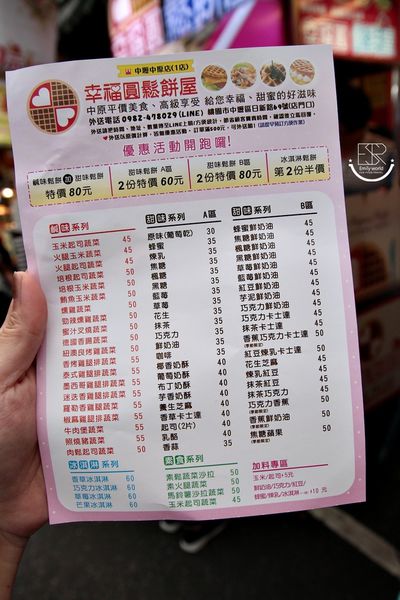 中壢中原店(1店)
幸福圓鬆餅屋
中原平價美食、高級享受 給您幸福、甜蜜的好滋味
外送電話 0982-498029(LINE) 桃園市中壢區日新路69號(店門口)
優惠活動開跑囉!
鹹味鬆餅 加 甜味鬆餅
特價 80元
甜味鬆餅 A區
2份特價 60元
甜味鬆餅 B區
2份特價 80元
冰淇淋鬆餅
第2份半價
鹹味系列
玉米起司蔬菜 45
火腿玉米蔬菜 45
火腿起司蔬菜 45
培根起司蔬菜 50
培根玉米蔬菜 50
鮪魚玉米蔬菜 50
燻雞蔬菜 50
勁辣燻雞蔬菜 50
蜜汁叉燒蔬菜 50
德國香腸蔬菜 50
紐奧良烤雞蔬菜 50
香烤雞腿排蔬菜 55
泰式雞腿排蔬菜 55
墨西哥雞腿排蔬菜 55
迷迭香雞腿排蔬菜 55
羅勒香雞腿蔬菜 55
椒麻雞腿排蔬菜 55
牛肉堡蔬菜 55
照燒豬蔬菜 55
肉鬆起司蔬菜 50
甜味系列 A區
原味(葡萄乾) 30
蜂蜜 35
煉乳 35
焦糖 35
楓糖 35
黑糖 35
藍莓 35
草莓 35
花生 35
抹茶 35
巧克力 35
鮮奶油 35
咖啡 35
椰香奶酥 40
葡萄奶酥 40
布丁奶酥 40
芋香奶酥 40
養生芝麻 40
香草卡士達 40
起司(2片) 40
乳酪 40
香蒜 35
甜味系列 B區
蜂蜜鮮奶油 45
焦糖鮮奶油 45
楓糖鮮奶油 45
黑糖鮮奶油 45
草莓鮮奶油 45
藍莓鮮奶油 45
紅豆鮮奶油 45
芋泥鮮奶油 45
巧克力鮮奶油 45
抹茶卡士達 45
巧克力卡士達 45
香蕉巧克力卡士達 50
紅豆煉乳卡士達 50
花生芝麻 45
煉乳紅豆 45
抹茶紅豆 45
抹茶巧克力 45
巧克力香蕉 45
香蕉鮮奶油 45
焦糖蘋果 45
冰淇淋系列
香草冰淇淋 60
巧克力冰淇淋 60
草莓冰淇淋 60
芒果冰淇淋 60
素食系列
素鬆蔬菜沙拉 50
素火腿蔬菜 50
馬鈴薯沙拉蔬菜 50
玉米起司蔬菜 50
加料專區
玉米/起司+5元
鮮奶油/巧克力/紅豆/
蜂蜜/煉乳/冰淇淋(一球)+10元
ESR
Emily world